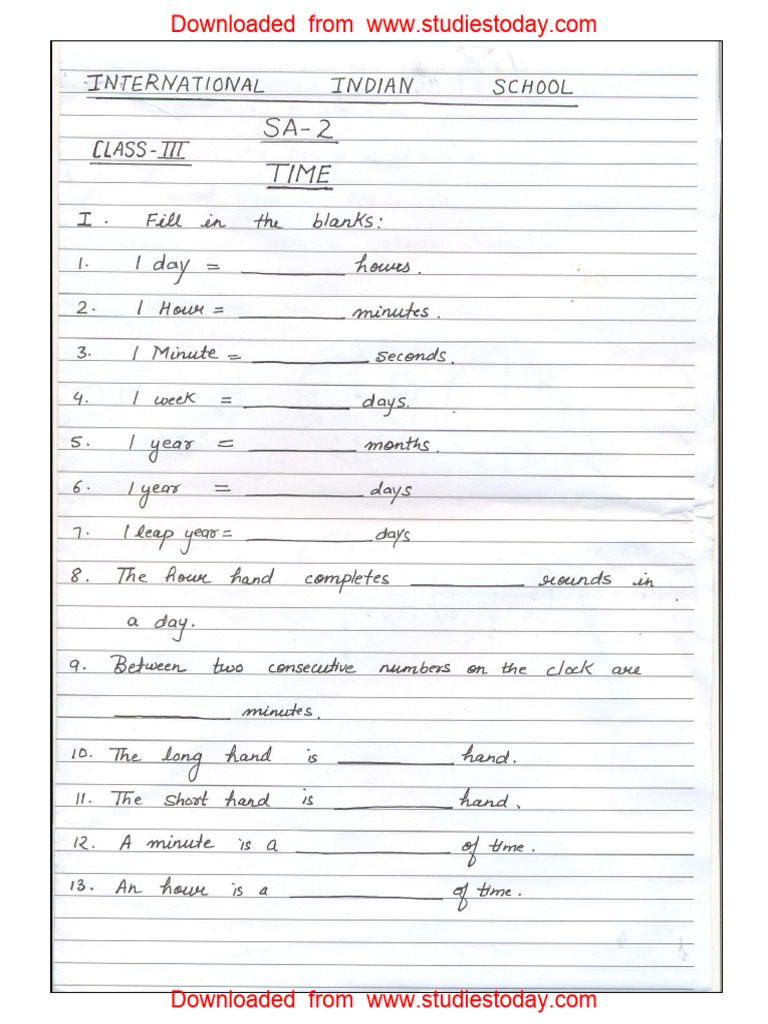 Downloaded from www.studiestoday.com
INTERNATIONAL INDIAN SCHOOL
SA-2
CLASS-III
TIME
I. Fill in the blanks:
1. 1 day = ________ hours.
2. 1 Hour = ________ minutes.
3. 1 Minute = ________ seconds.
4. 1 week = ________ days.
5. 1 year = ________ months.
6. 1 year = ________ days
7. 1 leap year = ________ days
8. The hour hand completes ________ rounds in
a day.
9. Between two consecutive numbers on the clock are
________ minutes.
10. The long hand is ________ hand.
11. The short hand is ________ hand.
12. A minute is a ________ of time.
13. An hour is a ________ of time.
Downloaded from www.studiestoday.com